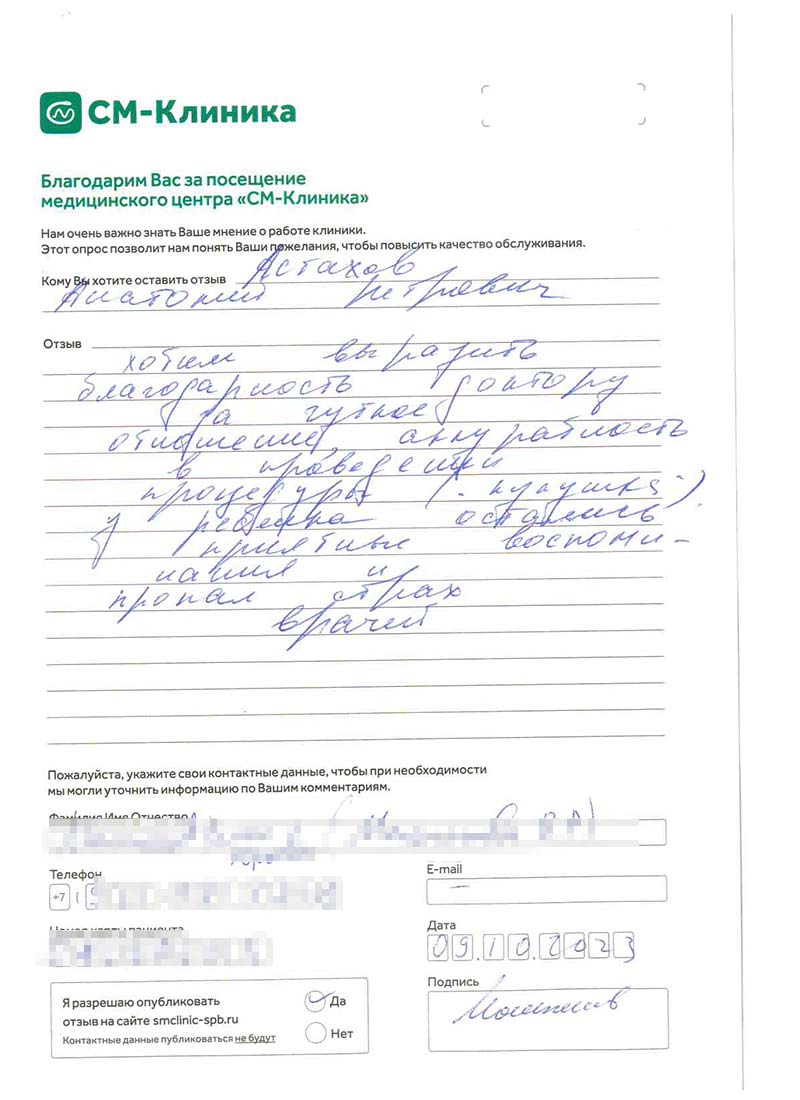 СМ-Клиника
Благодарим Вас за посещение
медицинского центра «СМ-Клиника»
Нам очень важно знать Ваше мнение о работе клиники.
Этот опрос позволит нам понять Ваши пожелания, чтобы повысить качество обслуживания.
Кому Вы хотите оставить отзыв Астахов
Анатолий Петрович
Отзыв
хотим выразить
благодарность доктору
за чуткое
отношение, аккуратность
в проведении
процедуры ("кукушка").
у ребенка остались
приятные воспоми-
нания и
пропал страх
врачей
Пожалуйста, укажите свои контактные данные, чтобы при необходимости
мы могли уточнить информацию по Вашим комментариям.
Фамилия Имя Отчество
Телефон
+7 (
E-mail
–
Номер карты пациента
Дата
09.10.2023
Я разрешаю опубликовать
отзыв на сайте smclinic-spb.ru
Контактные данные публиковаться не будут
Да
Нет
Подпись